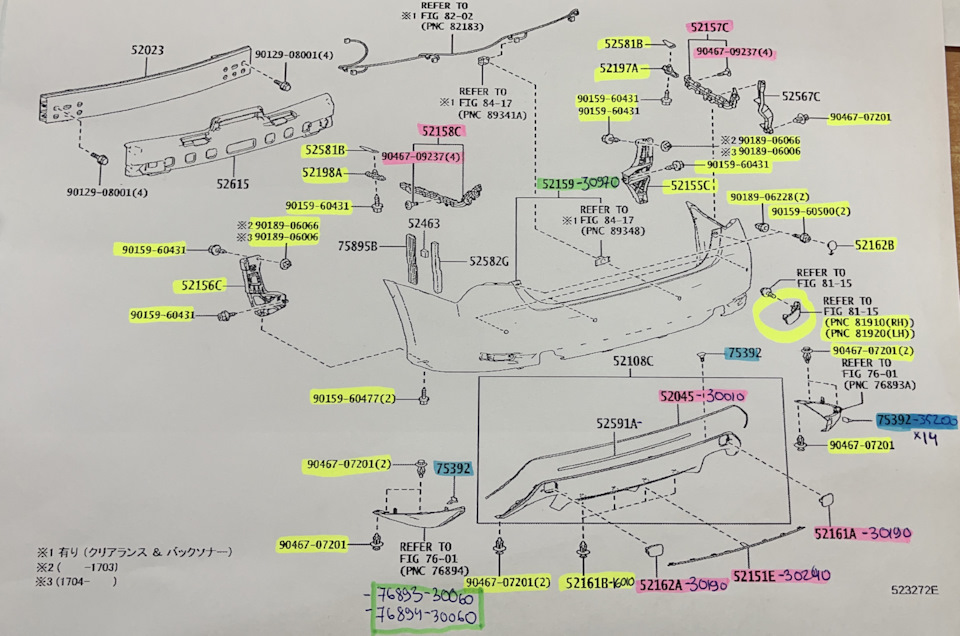 REFER TO
※1 FIG 82-02
(PNC 82183)
52023
90129-08001(4)
52157C
52581B
90467-09237(4)
52197A
REFER TO
※1 FIG 84-17
(PNC 89341A)
90159-60431
90159-60431
52567C
90467-07201
52158C
52581B
90467-09237(4)
※2 90189-06066
※3 90189-06006
90159-60431
52198A
90129-08001(4)
52615
52159-30970
52155C
90159-60431
REFER TO
※1 FIG 84-17
(PNC 89348)
90189-06228(2)
90159-60500(2)
52463
※2 90189-06066
※3 90189-06006
75895B
52162B
90159-60431
52582G
52156C
REFER TO
FIG 81-15
REFER TO
FIG 81-15
(PNC 81910(RH))
(PNC 81920(LH))
90159-60431
52108C
75392
90467-07201(2)
REFER TO
FIG 76-01
(PNC 76893A)
90159-60477(2)
52045-30010
52591A-
75392-35200
x14
90467-07201
90467-07201(2)
75392
52161A-30190
90467-07201
REFER TO
FIG 76-01
(PNC 76894)
※1 有り (クリアランス & バックソナー)
※2 ( -1703)
※3 (1704- )
90467-07201(2)
52161B-16010
52162A-30190
52151E-30240
523272E
-76893-30060
-76894-30060